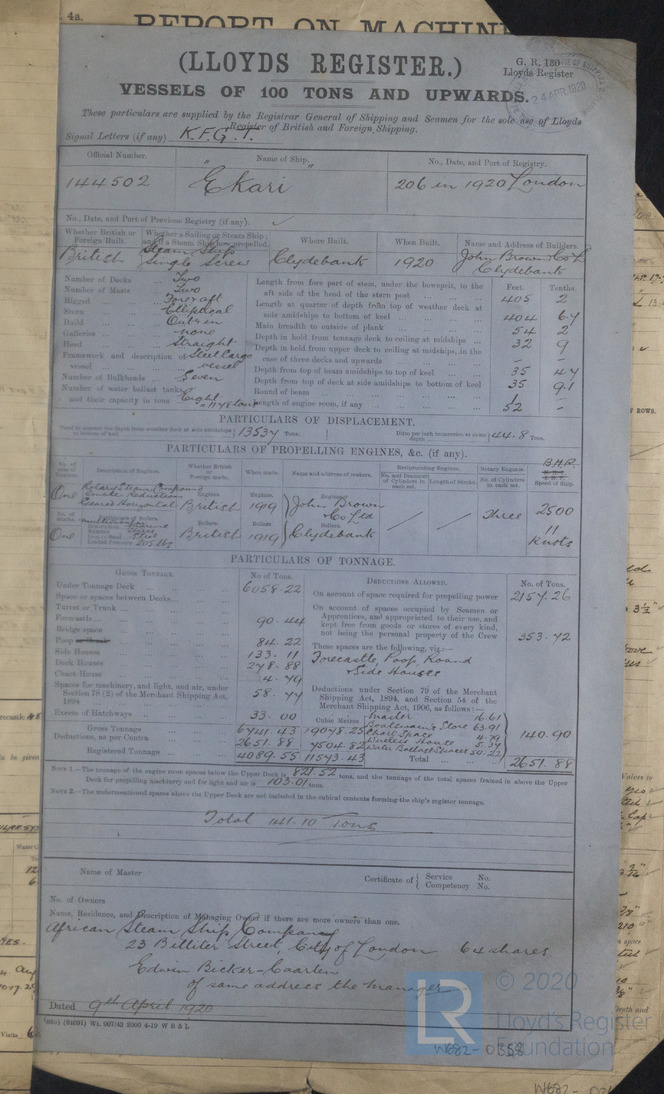 4a.
REPORT ON MACHIN
(LLOYDS REGISTER.)
G. R. 180
Lloyds Register
24 APR 1920
VESSELS OF 100 TONS AND UPWARDS.
These particulars are supplied by the Registrar General of Shipping and Seamen for the sole use of Lloyds
Register of British and Foreign Shipping.
Signal Letters (if any) K.F.G.T.
Official Number. Name of Ship. No., Date, and Port of Registry.
144502 "Ekari" 206 in 1920 London
No., Date, and Port of Previous Registry (if any).
Whether British or Foreign Built. Whether a Sailing or Steam Ship; and if a Steam Ship how propelled. Where Built. When Built. Name and Address of Builders.
British Steam Ship Single Screw Clydebank 1920 John Brown & Co Ld Clydebank
Number of Decks Two
Number of Masts Two
Rigged Fore & aft
Stern Elliptical
Build Outr in
Galleries none
Head Straight
Framework and description of vessel Steel Cargo vessel
Number of Bulkheads Seven
Number of water ballast tanks and their capacity in tons Eight
Feet. Tenths.
Length from fore part of stem, under the bowsprit, to the aft side of the head of the stern post 405 2
Length at quarter of depth from top of weather deck at side amidships to bottom of keel 404 67
Main breadth to outside of plank 54 2
Depth in hold from tonnage deck to ceiling at midships 32 9
Depth in hold from upper deck to ceiling at midships, in the case of three decks and upwards – –
Depth from top of beam amidships to top of keel 35 47
Depth from top of deck at side amidships to bottom of keel 35 91
Round of beam 1 –
Length of engine room, if any 52 –
PARTICULARS OF DISPLACEMENT.
13537 Tons. 44.8 Tons.
PARTICULARS OF PROPELLING ENGINES, &c. (if any).
No. of sets of Engines. Description of Engines. Whether British or Foreign made. When made. Name and address of makers. Reciprocating Engines. Rotary Engines. B.H.P.
No. and Diameter of Cylinders in each set. Length of Stroke. No. of Cylinders in each set. Speed of Ship.
One Rotary Steam Compound Double Reduction Geared Horizontal Engines. British Engines. 1919 Engines. John Brown & Co Ltd Three 2500
One Boilers. British Boilers. 1919 Boilers. Clydebank 11 Knots
PARTICULARS OF TONNAGE.
GROSS TONNAGE. No of Tons.
Under Tonnage Deck 6058.22
Space or spaces between Decks
Turret or Trunk
Forecastle 90.44
Bridge space
Poop 84.22
Side Houses 133.11
Deck Houses 278.88
Chart House 4.79
Spaces for machinery, and light, and air, under Section 78 (2) of the Merchant Shipping Act, 1894 58.77
Excess of Hatchways 33.00
Gross Tonnage 6741.43 19078.25
Deductions, as per Contra 2651.88 7504.82
Registered Tonnage 4089.55 11573.43
Cubic Metres
DEDUCTIONS ALLOWED. No. of Tons.
On account of space required for propelling power 2157.26
On account of spaces occupied by Seamen or Apprentices, and appropriated to their use, and kept free from goods or stores of every kind, not being the personal property of the Crew 353.72
These spaces are the following, viz:—
Forecastle, Poop, Round & Side Houses
Deductions under Section 79 of the Merchant Shipping Act, 1894, and Section 54 of the Merchant Shipping Act, 1906, as follows:—
Master 16.61
Boatswain's Store 63.91
Chart Space 4.79
Wireless House 5.37
Water Ballast Spaces 50.22
140.90
Total 2651.88
NOTE 1.—The tonnage of the engine room spaces below the Upper Deck is 821.52 tons, and the tonnage of the total spaces framed in above the Upper Deck for propelling machinery and for light and air is 103.01 tons.
NOTE 2.—The undermentioned spaces above the Upper Deck are not included in the cubical contents forming the ship's register tonnage.
Total 141.10 Tons
Name of Master Certificate of { Service No. Competency No.
No. of Owners
Name, Residence, and Description of Managing Owner if there are more owners than one.
African Steam Ship Company
23 Billiter Street, City of London 64 shares
Edwin Bicker-Caarten
of same address the manager
Dated 9th April 1920
W682-0358
LR
© 2020
Lloyd's Register
Foundation